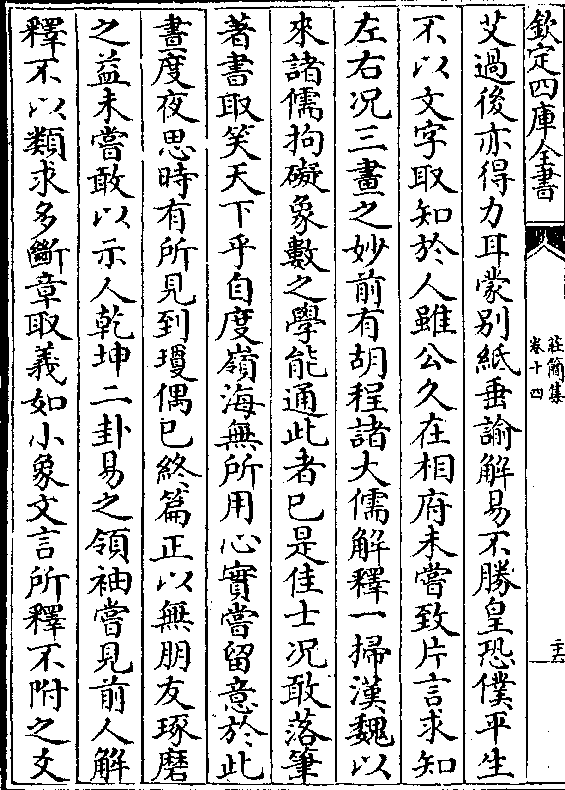 欽定四庫全書
莊簡集
卷十四
艾過後亦得力耳蒙别紙垂諭解易不勝皇恐僕平生
不以文字取知於人雖公久在相府未嘗致片言求知
左右况三畫之妙前有胡程諸大儒解釋一掃漢魏以
來諸儒拘礙象數之學能通此者已是佳士况敢落筆
著書取笑天下乎自度嶺海無所用心實嘗留意於此
晝度夜思時有所見到瓊偶已終篇正以無朋友琢磨
之益未嘗敢以示人乾坤二卦易之領袖嘗見前人解
釋不以類求多斷章取義如小象文言所釋不附之文